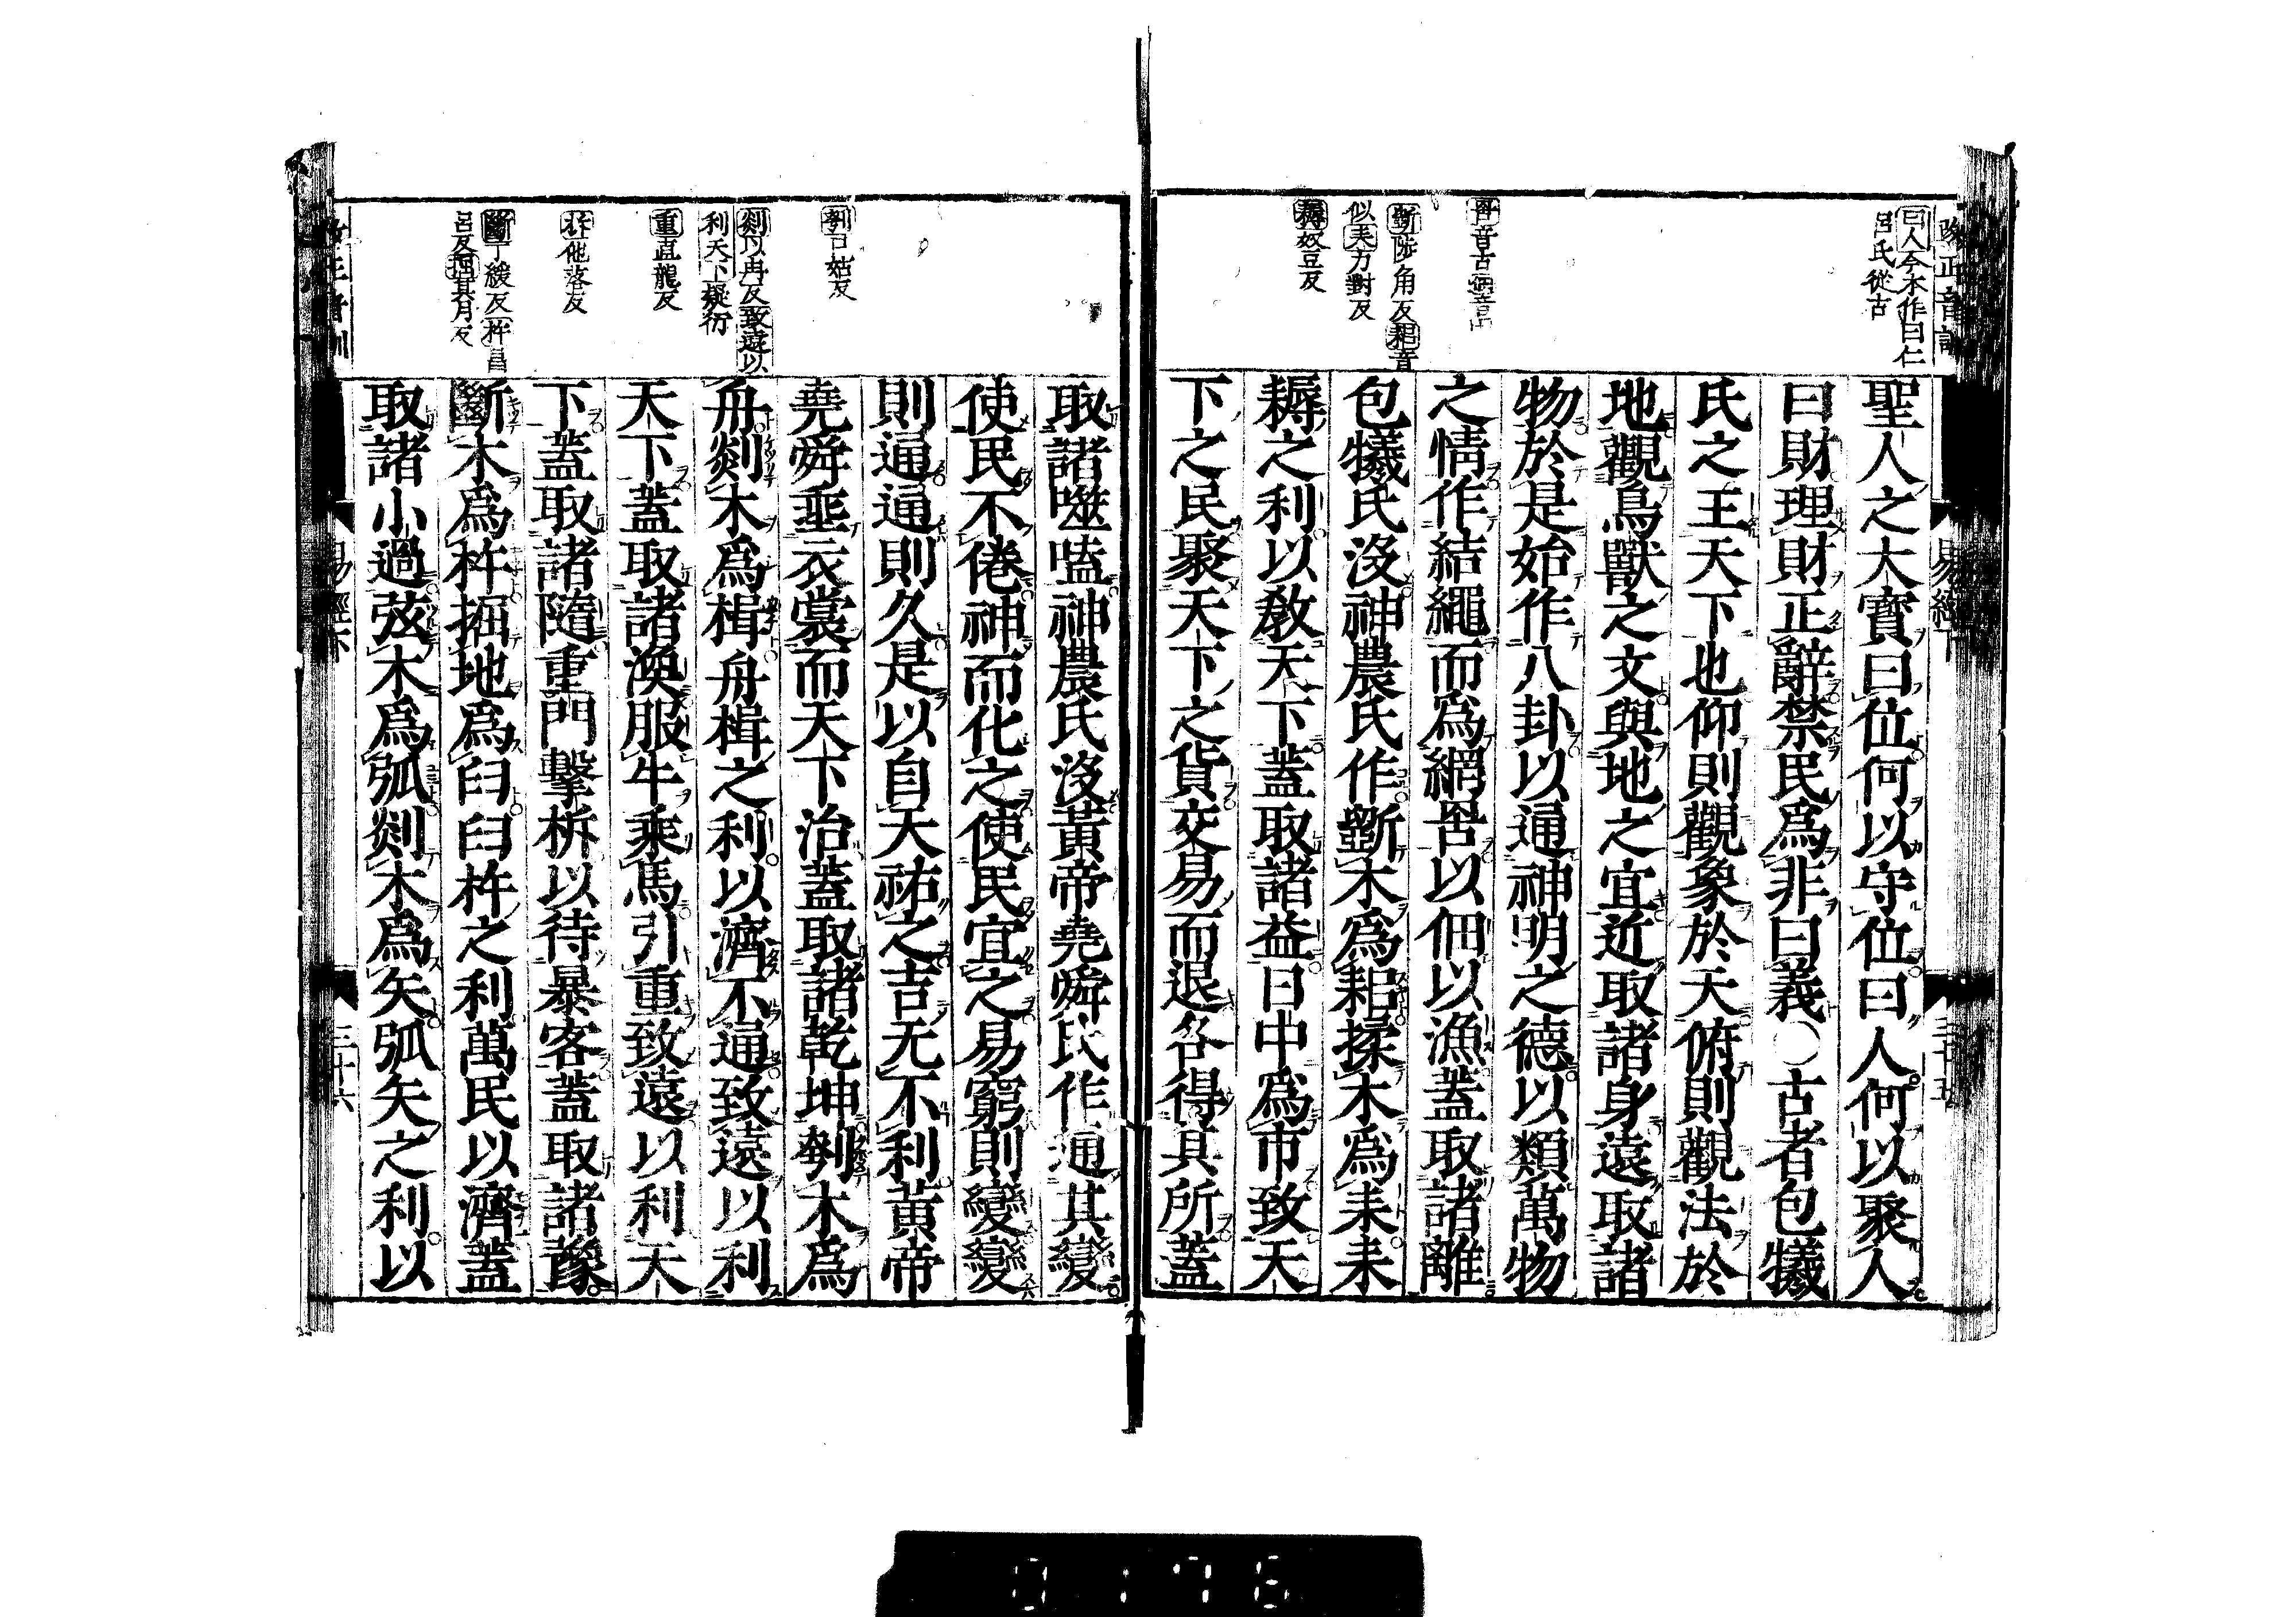 曰人今本作曰仁
呂氏從古
罟音古佃音田
斲陟角反耜音
似耒力對反
耨奴豆反
聖人之大寳曰位何以守位曰人何以聚人
曰財理財正辭禁民爲非曰義○古者包犧
氏之王天下也仰則觀象於天俯則觀法於
地觀鳥獸之文與地之宜近取諸身遠取諸
物於是始作八卦以通神明之德以類萬物
之情作結繩而爲網罟以佃以漁蓋取諸離
包犧氏沒神農氏作斲木爲耜揉木爲耒耒
耨之利以敎天下蓋取諸益日中爲市致天
下之民聚天下之貨交易而退各得其所蓋
易經下
三十五
刳口姑反
剡以冉反致遠以
利天下疑衍
重直龍反
柝他落反
斷丁緩反杵昌
呂反掘其月反
取諸噬嗑神農氏沒黃帝堯舜氏作通其變
使民不倦神而化之使民宜之易窮則變變
則通通則久是以自天祐之吉无不利黃帝
堯舜垂衣裳而天下治蓋取諸乾坤刳木爲
舟剡木爲楫舟楫之利以濟不通致遠以利
天下蓋取諸渙服牛乘馬引重致遠以利天
下蓋取諸隨重門擊柝以待暴客蓋取諸豫
斷木爲杵掘地爲臼臼杵之利萬民以濟蓋
取諸小過弦木爲弧剡木爲矢弧矢之利以
易經下
三十六
0176